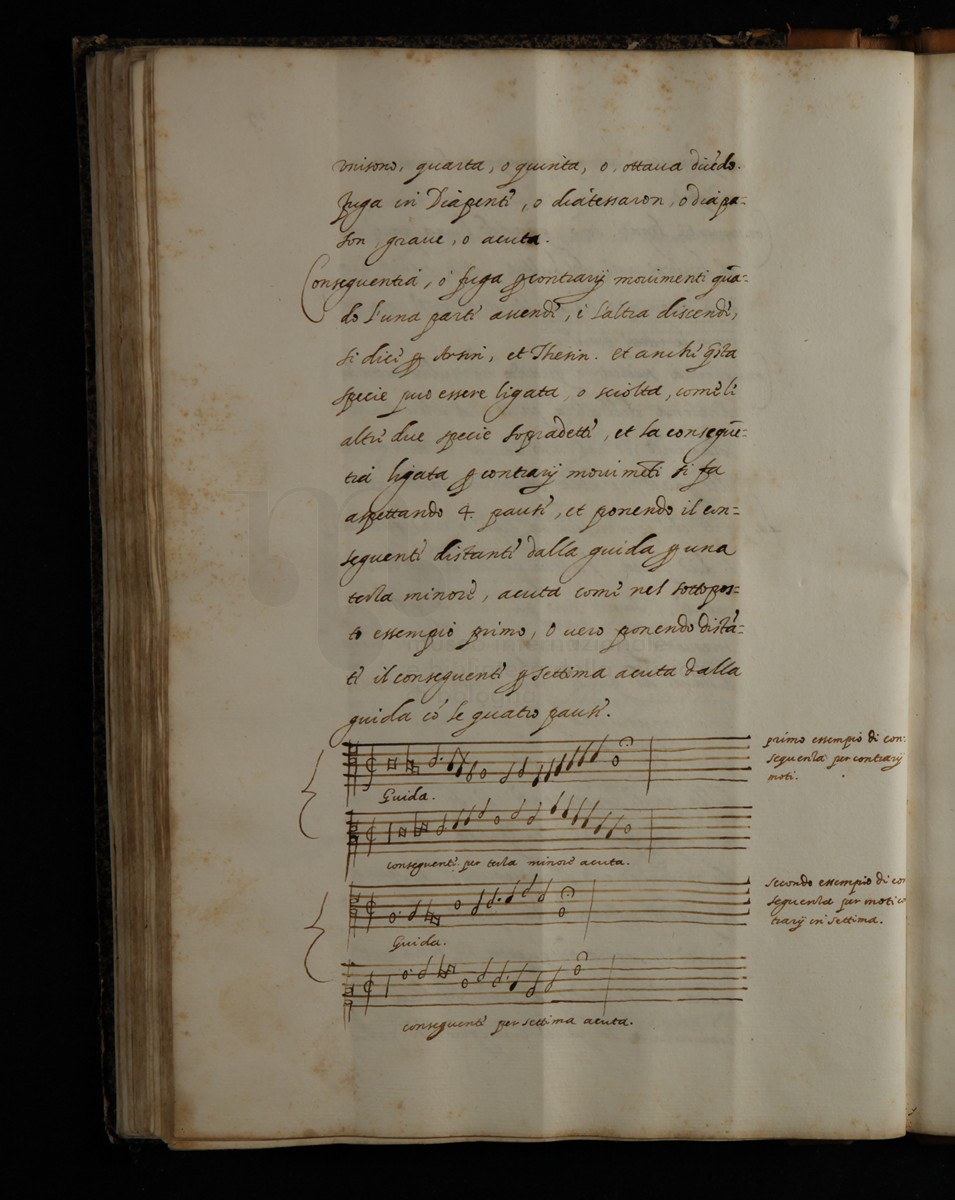 unisono, quarta, o quinta, o, ottaua dicēdo.
fuga in Diapente, o diatessaron, o diapa=
son graue, o acuta.
Conseguentia, o fuga ꝑ contrarij mouimenti quā=
do l'una parte ascende, e l'altra discende,
si dice ꝑ Arsin, et Thesin. et anche q̄sta
specie puo essere ligata, o sciolta, come li
altre due specie sopradette, et la consequē=
tia ligata ꝑ contrarij mouimēti si fa
aspettando 4. pause, et ponendo il con=
seguente distante dalla guida ꝑ una
terza minore, acuta come nel sottopos=
to essempio primo, o uero ponendo distā=
te il conseguente ꝑ settima acuta dalla
guida cō le quatro pause.
primo essempio di con:
seguenza per contrarij
moti.
Guida.
conseguente per terza minore acuta.
secondo essempio di co
seguenza per moti cō
trarij in settima.
Guida.
conseguente per settima acuta.